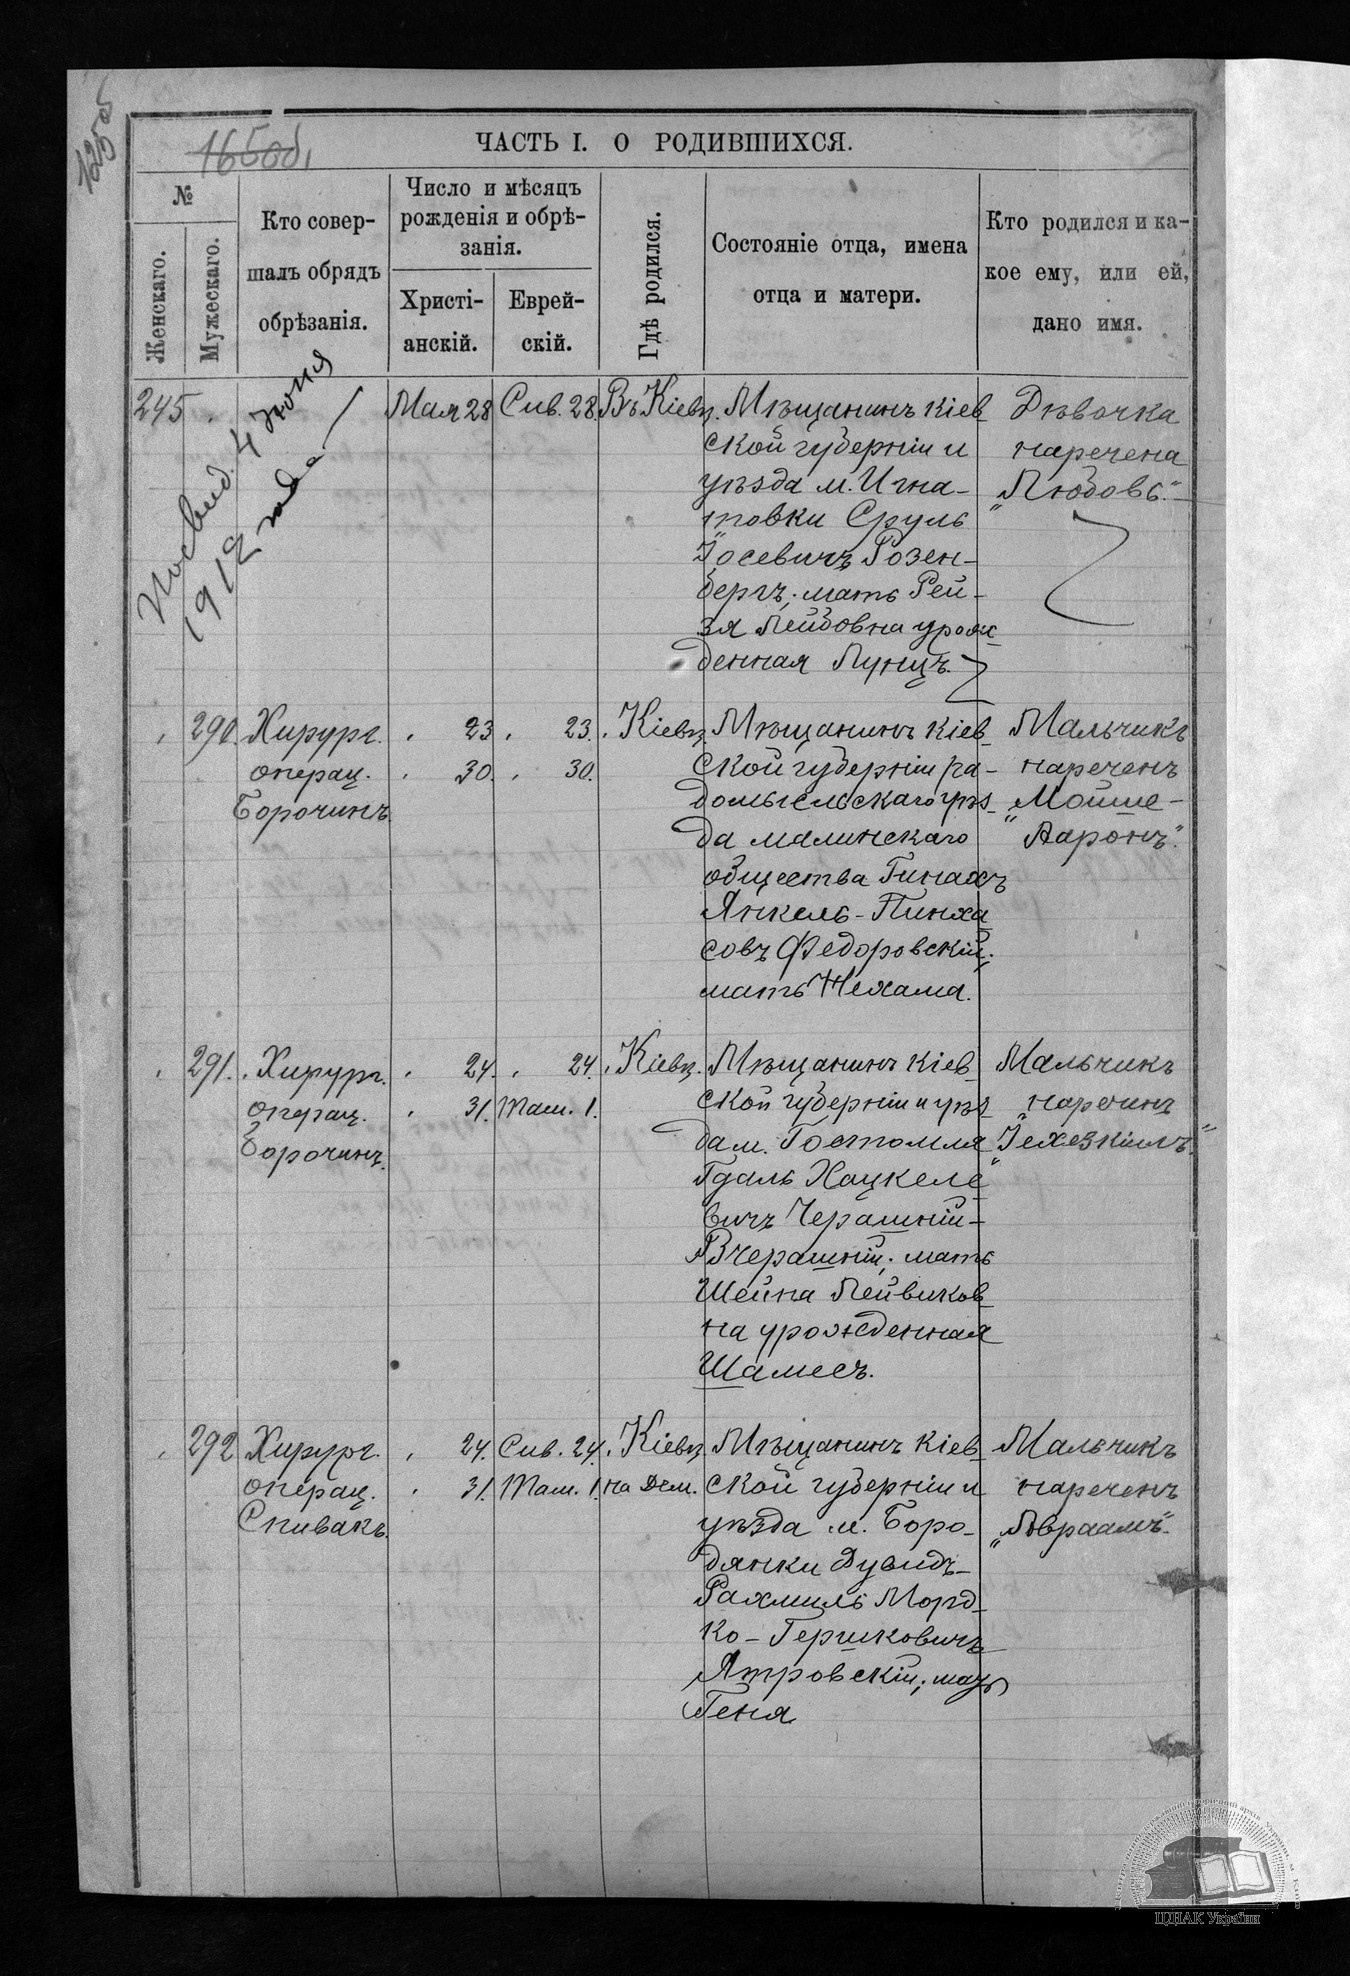 125об
165об.
ЧАСТЬ I. О РОДИВШИХСЯ.
№
Женскаго.
Мужескаго.
Кто совер-
шалъ обрядъ
обрѣзанія.
Число и мѣсяцъ
рожденія и обрѣ-
занія.
Христі-
анскій.
Еврей-
скій.
Гдѣ родился.
Состояніе отца, имена
отца и матери.
Кто родился и ка-
кое ему, или ей,
дано имя.
245
4 Іюня
1912 года
Мая 28
Сив. 28.
Въ Кіевѣ.
Мѣщанинъ Кіев-
ской губерніи и
уѣзда м. Игна-
товки Сруль
Іосевичъ Розен-
бергъ; мать Рей-
зя Лейбовна урож-
денная Лунцъ.
Дѣвочка
наречена
"Любовь."
290.
Хирург.
операц.
Борочинъ.
23
30.
23.
30.
Кіевѣ.
Мѣщанинъ Кіев-
ской губерніи ра-
домысльскаго уѣз-
да малинскаго
общества Пинахъ
Янкель-Пинха
совъ Федоровскій;
мать Нехама.
Мальчикъ
нареченъ
"Мойше-
Ааронъ".
291.
Хирург.
операц.
Борочинъ.
24.
31.
24.
Там. 1.
Кіевѣ.
Мѣщанинъ Кіев-
ской губерніи и уѣз
да м. Гостомля
Гдаль Хацкеле
вичъ Черашній-
Вчерашній; мать
Шейна Лейвиков-
на урожденная
Шамесъ.
Мальчикъ
нареченъ
"Іехезкіилъ."
292
Хирург.
операц.
Спивакъ.
24.
31.
Сив. 24.
Там. 1.
Кіевѣ
на Дем.
Мѣщанинъ Кіев-
ской губерніи и
уѣзда м. Боро-
дянки Дувидъ-
Рахмиль Морд-
ко-Гершковичъ
Ятровскій; мать
Геня
Мальчикъ
нареченъ
"Авраамъ".
ЦДІАК України